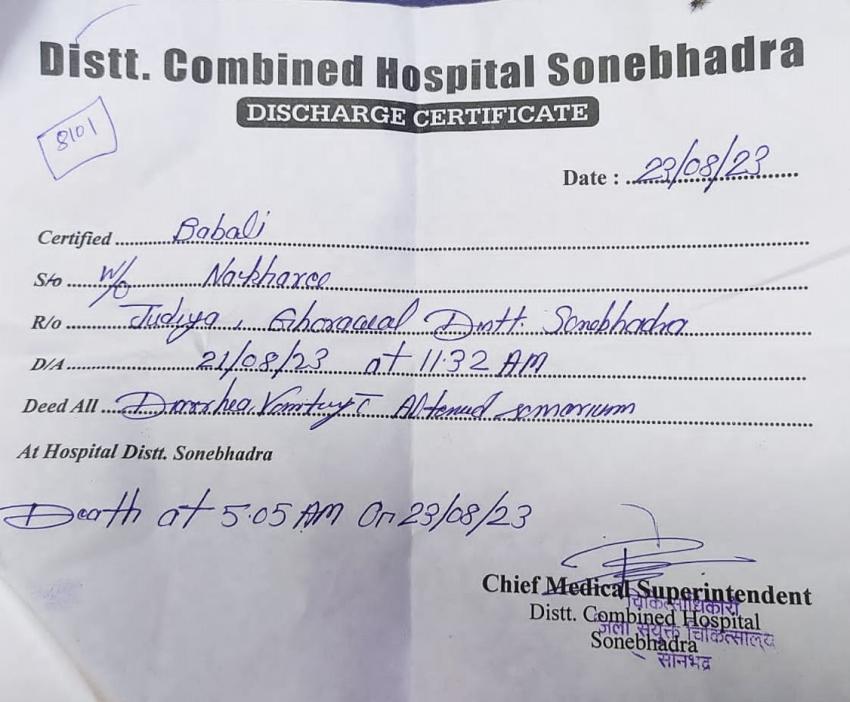 Distt. Combined Hospital Sonebhadra
DISCHARGE CERTIFICATE
8101
Date : 23/08/23
Certified Babali
S/o W/o Nakharee
R/o Judiya, Ghorawal Distt. Sonebhadra
D/A 21/08/23 at 11:32 AM
Deed All Diarrhea, Vomiting c Altered
At Hospital Distt. Sonebhadra
Death at 5:05 AM On 23/08/23
Chief Medical Superintendent
चिकित्साधिकारी
Distt. Combined Hospital
जिला संयुक्त चिकित्सालय
Sonebhadra
सोनभद्र